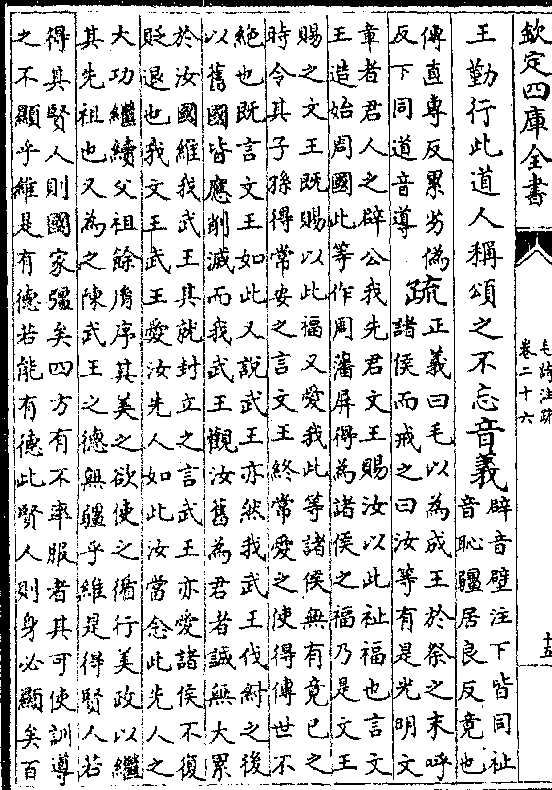 欽定四庫全書
毛詩注疏
卷二十六
王勤行此道人稱頌之不忘音義
辟音璧注下皆同祉
音恥疆居良反竟也
傳直專反累劣偽
反下同道音導
疏
正義曰毛以為成王於祭之末呼
諸侯而戒之曰汝等有是光明文
章者君人之辟公我先君文王賜汝以此祉福也言文
王造始周國此等作周藩屏得為諸侯之福乃是文王
賜之文王既賜以此福又愛我此等諸侯無有竟已之
時令其子孫得常安之言文王終常愛之使得傳世不
絕也既言文王如此又說武王亦然我武王伐紂之後
以舊國皆應削滅而我武王觀汝舊為君者誠無大累
於汝國維我武王其就封立之言武王亦愛諸侯不復
貶退也我文王武王愛汝先人如此汝當念此先人之
大功繼續父祖餘胤序其美之欲使之循行美政以繼
其先祖也又為之陳武王之德無疆乎維是得賢人若
得其賢人則國家彊矣四方有不率服者其可使訓導
之不顯乎維是有德若能有德此賢人則身必顯矣百